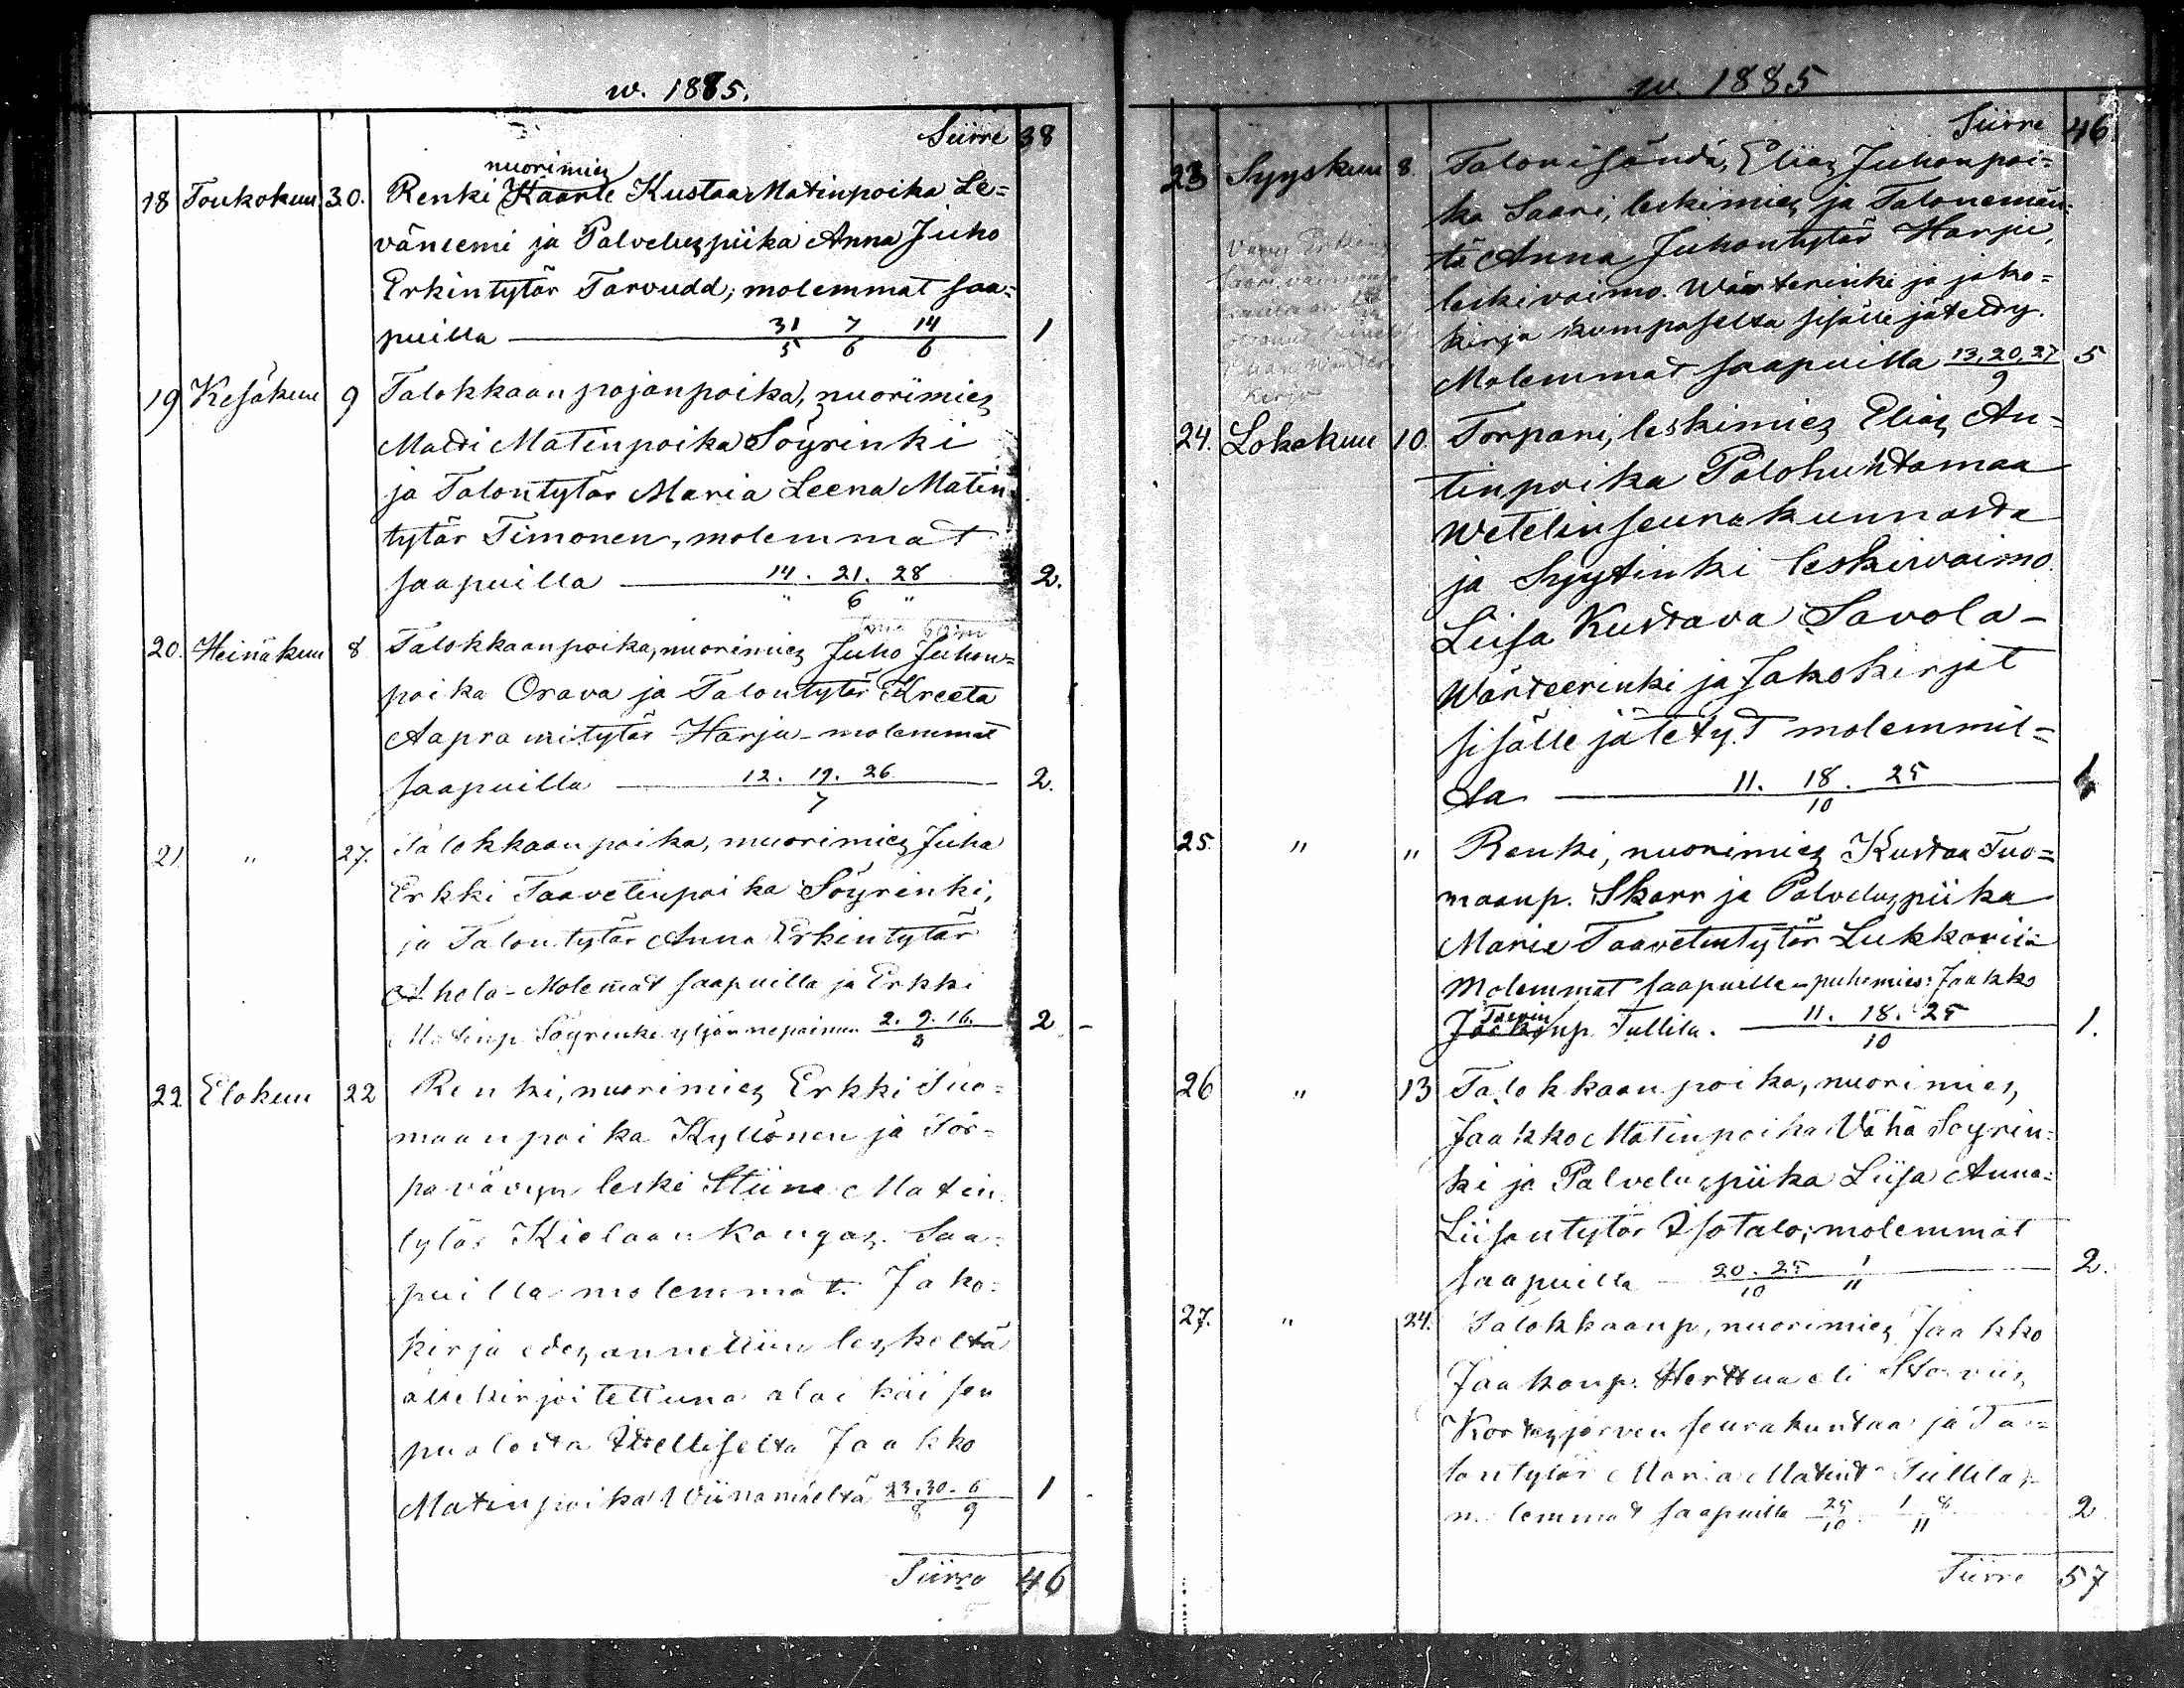 w. 1885.
Siirre 38
nuorimies
18 Toukokuu 30. Renki Kaarle Kustaa Matinpoika Le=
väniemi ja Palveluspiika Anna Juho
Erkintytär Tarvudd; molemmat saa=
puilla — 31/5 7/6 14/6 — 1
19 Kesäkuu 9 Talokkaan pojanpoika, nuorimies
Matti Matinpoika Söyrinki
ja Talontytär Maria Leena Matin
tytär Timonen, molemmat
saapuilla — 14. 21. 28 / " 6 " 2.
20. Heinäkuu 8 Talokkaanpoika, nuorimies Juho Juhon=
poika Orava ja Talontytär Kreeta
Aapramitytär Harju - molemmat
saapuilla — 12. 19. 26 / 7 — 2.
21. " 27. Talokkaanpoika, nuorimies Juha
Erkki Taavetinpoika Söyrinki,
ja Talontytär Anna Erkintytär
Ahola - Molemat saapuilla ja Erkki
Matinp. Söyrinki 2. 9. 16. / 8 2 -
22 Elokuu 22 Renki, nuorimies Erkki Tuo=
maanpoika Kyllönen ja Tor=
pavävyn leski Stiina Matin
tytär Kielaankangas. Saa=
puilla molemmat. Jako=
kirja edesannettiin leskeltä
allekirjoitettuna alaikäisen
puolesta Itselliseltä Jaakko
Matinpoika Wiinamäeltä 23. 30. 6 / 8 9 — 1
Siirre 46
w. 1885
Siirre 46
23 Syyskuu 8. Talonisäntä, Elias Juhonpoi=
ka Saari, leskimies ja Talonemän=
tä Anna Juhontytär Harju,
leskivaimo. Wärteerinki ja jako=
kirja kummaselta sisälle jätetty.
Molemmat saapuilla 13, 20, 27 / 9 5
24. Lokakuu 10. Torpari, leskimies Elias An=
tinpoika Palohuhtamaa
Wetelin seurakunnasta
ja Syytinki leskivaimo
Liisa Kustava Savola -
Wärteerinki ja Jakokirjat
sisälle jätetyt molemmil=
ta — 11. 18. 25 / 10
25. " " Renki, nuorimies Kustaa Tuo=
maanp. Skarr ja Palveluspiika
Maria Taavetintytär Lukkarila
Molemmat saapuilla - puhemies: Jaakko
Jaakonp. Tullila. — 11. 18. 25 / 10 1.
26 " 13 Talokkaanpoika, nuorimies,
Jaakko Matinpoika Vähä Söyrin=
ki ja Palveluspiika Liisa Anna=
Liisantytär Isotalo; molemmat
saapuilla — 20. 25 / 10 1 / 11 — 2.
27. " 24. Talokkaanp, nuorimies Jaakko
Jaakonp. Herttua eli
Kortesjärven seurakuntaa ja Ta=
lontytär Maria Matint. Tullila,
molemmat saapuilla 25/10 1 8 / 11 2
Siirre 57